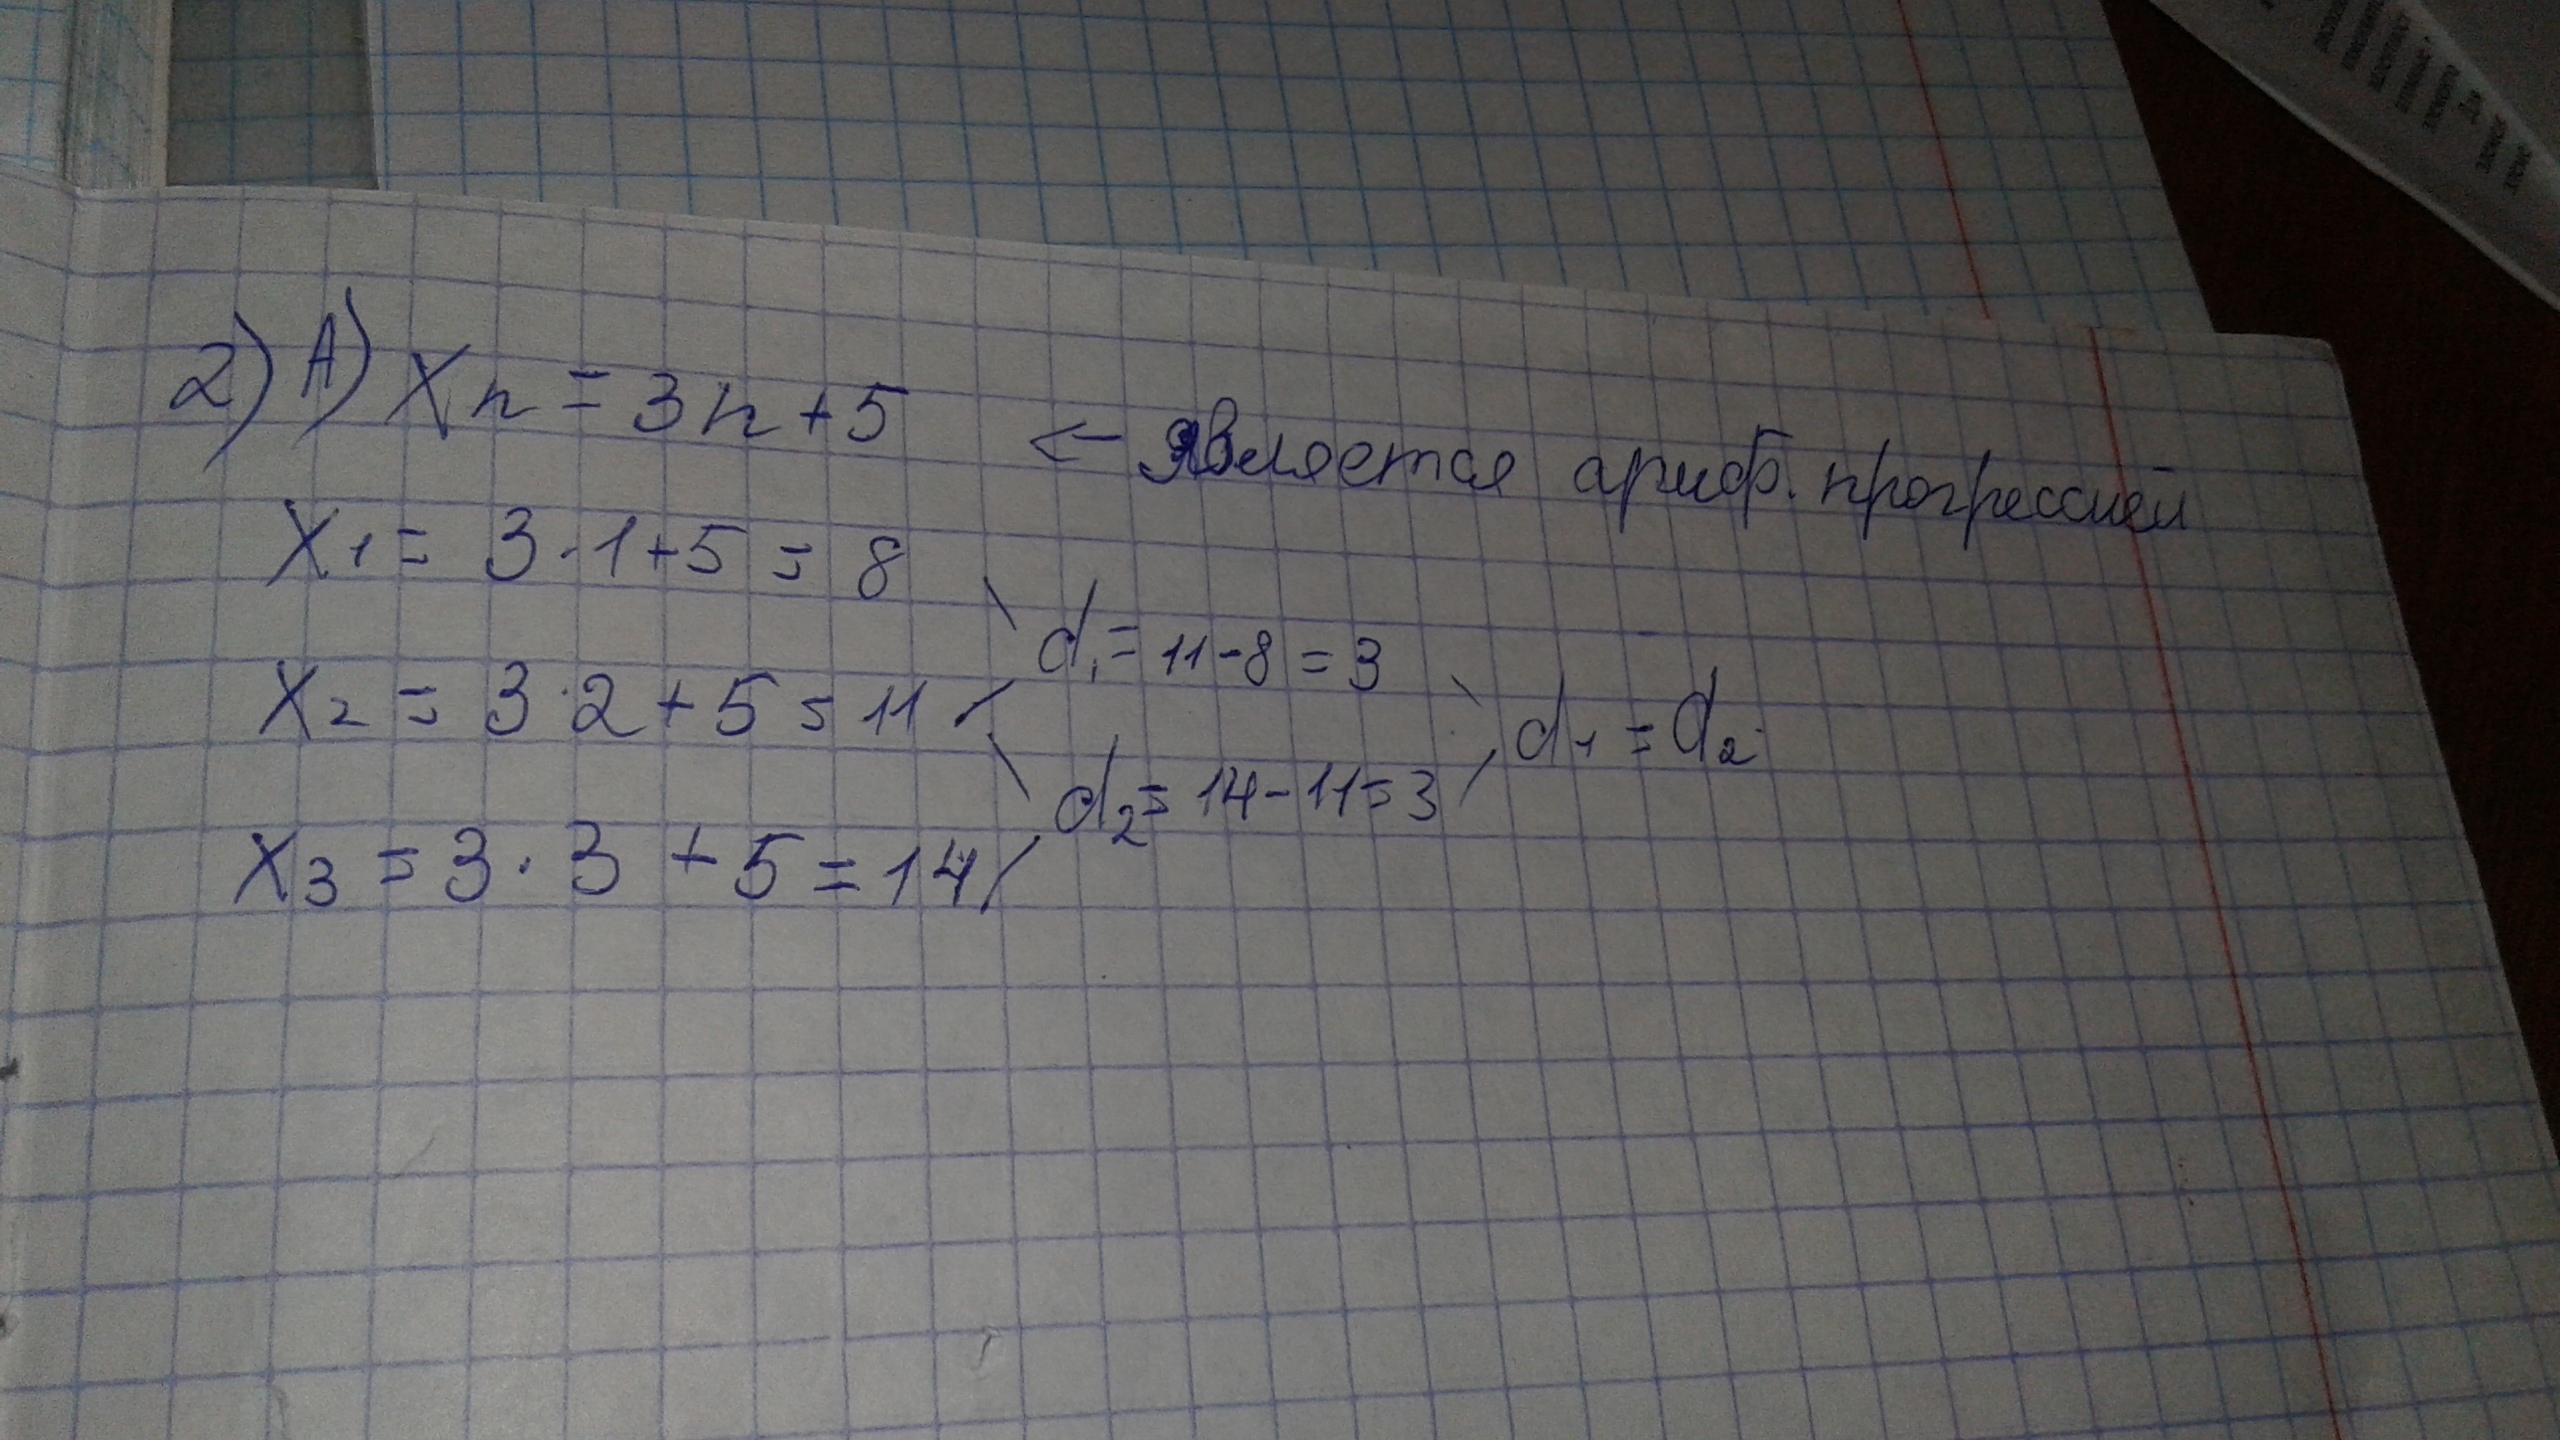 2) А) Xn = 3n + 5 ← является ариф. прогрессией
X1 = 3 · 1 + 5 = 8
d1 = 11 - 8 = 3
X2 = 3 · 2 + 5 = 11
d1 = d2
d2 = 14 - 11 = 3
X3 = 3 · 3 + 5 = 14